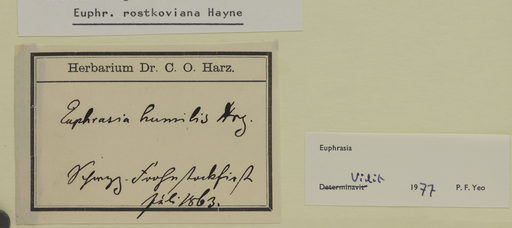 Euphr. rostkoviana Hayne
Herbarium Dr. C. O. Harz.
Euphrasia humilis Hrz.
Schwyz. Frohnstockfirst
Juli 1863.
Euphrasia
Vidit
Determinavit 1977 P. F. Yeo